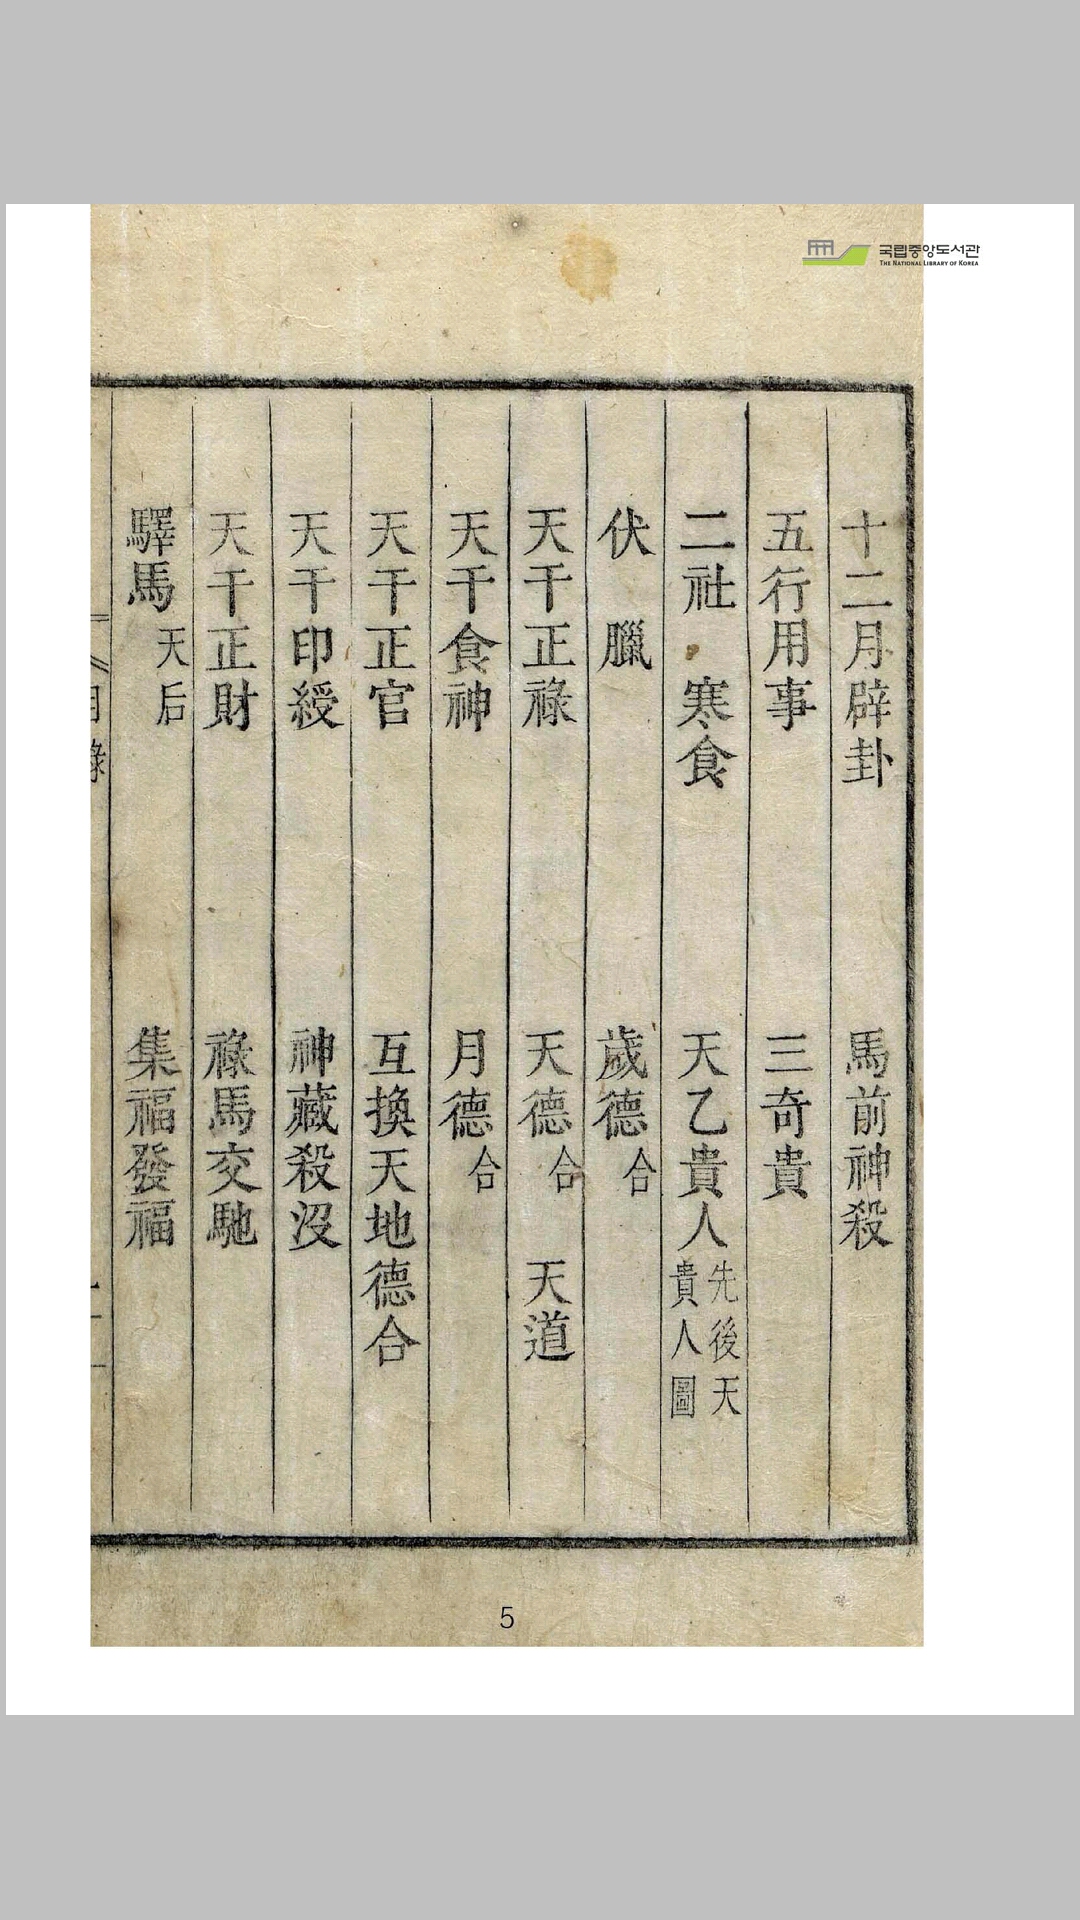 국립중앙도서관
THE NATIONAL LIBRARY OF KOREA
十二月辟卦　馬前神殺
五行用事　三奇貴
二社　寒食　天乙貴人 先後天 貴人圖
伏　臘　歲德合
天干正祿　天德合　天道
天干食神　月德合
天干正官　互換天地德合
天干印綬　神藏殺沒
天干正財　祿馬交馳
驛馬 天后　集福發福
目錄
5